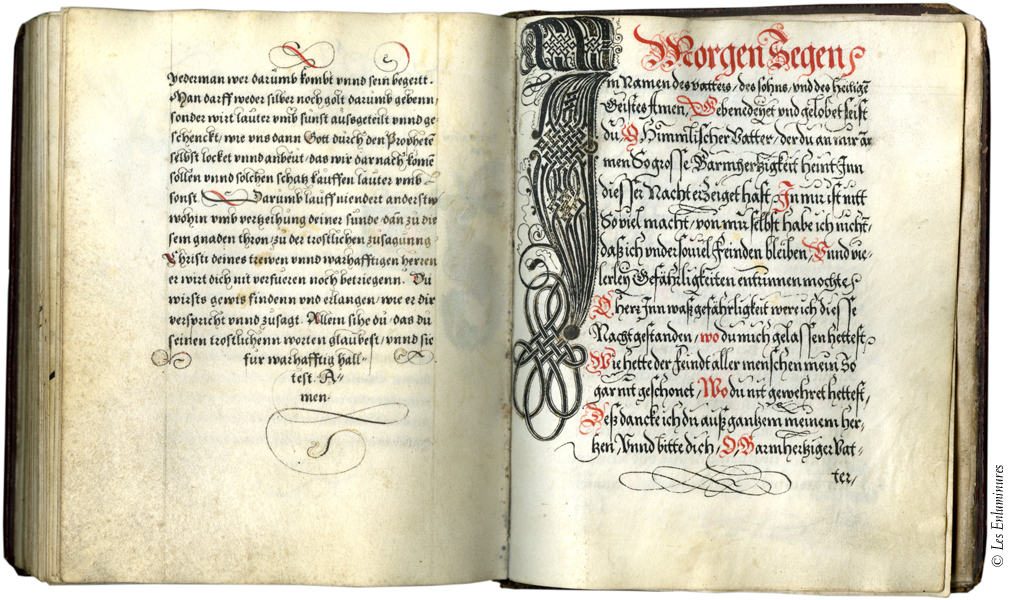 yederman wer darumb kombt vnnd sein begertt.
Man darff weder silber noch golt darumb gebenn,
sonder wirt lauter vmb sunst ausgeteilt vnnd ge-
schenckt, wie vns dann Gott durch den Prophetē
selbst locket vnnd anbeut, das wir darnach komē
sollen vnnd solchen schatz kauffen lauter vmb-
sonst. Darumb lauff niendert anderstw
wohin vmb verzeihung deiner sunde, dan zu die
sem gnaden thron, zu der trostlichen zusagunng
Christi deines trewen vnnd warhafftigen herren
er wirt dich nit verfueren noch betriegenn. Du
wirsts gewis findenn vnd erlangen, wie er dir
verspricht vnnd zusagt. Allein sihe du, das du
seinen trostlichenn worten glaubest, vnnd sie
fur warhafftig hall-
test. A-
men.
Morgen Segen
Im Namen des vatters, des sohns, vnd des heiligē
Geistes Amen, Gebenedeyet vnd gelobet seist
du O Himmlischer Vatter, der du an mir ar
men So grosse Barmhertzigkeit heint Inn
diesser Nacht erzeiget hast, In mir ist nitt
So viel macht, von mir selbst habe ich nicht,
daß ich vnder souiel Feinden bleiben, Vnnd vie-
lerley Gefährligkeiten entrinnen mochte,
O herr Inn waß gefährligkeit were ich diesse
Nacht gestanden, wo du mich gelassen hettest,
Wie hette der Feindt aller menschen mein So
gar nit geschonet, Wo du nit gewehret hettest,
Deß dancke ich du auß gantzem meinem her-
tzen, Vnnd bitte dich, O, Barmhertziger Vat-
ter,
© Les Enluminures